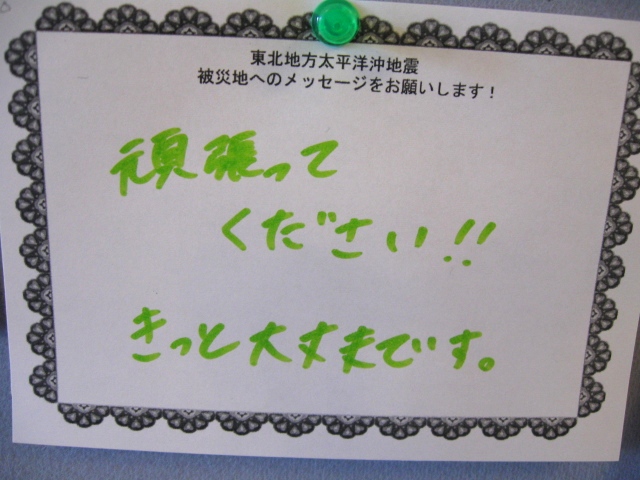 東北地方太平洋沖地震
被災地へのメッセージをお願いします！
頑張って
ください!!
きっと大丈夫です。